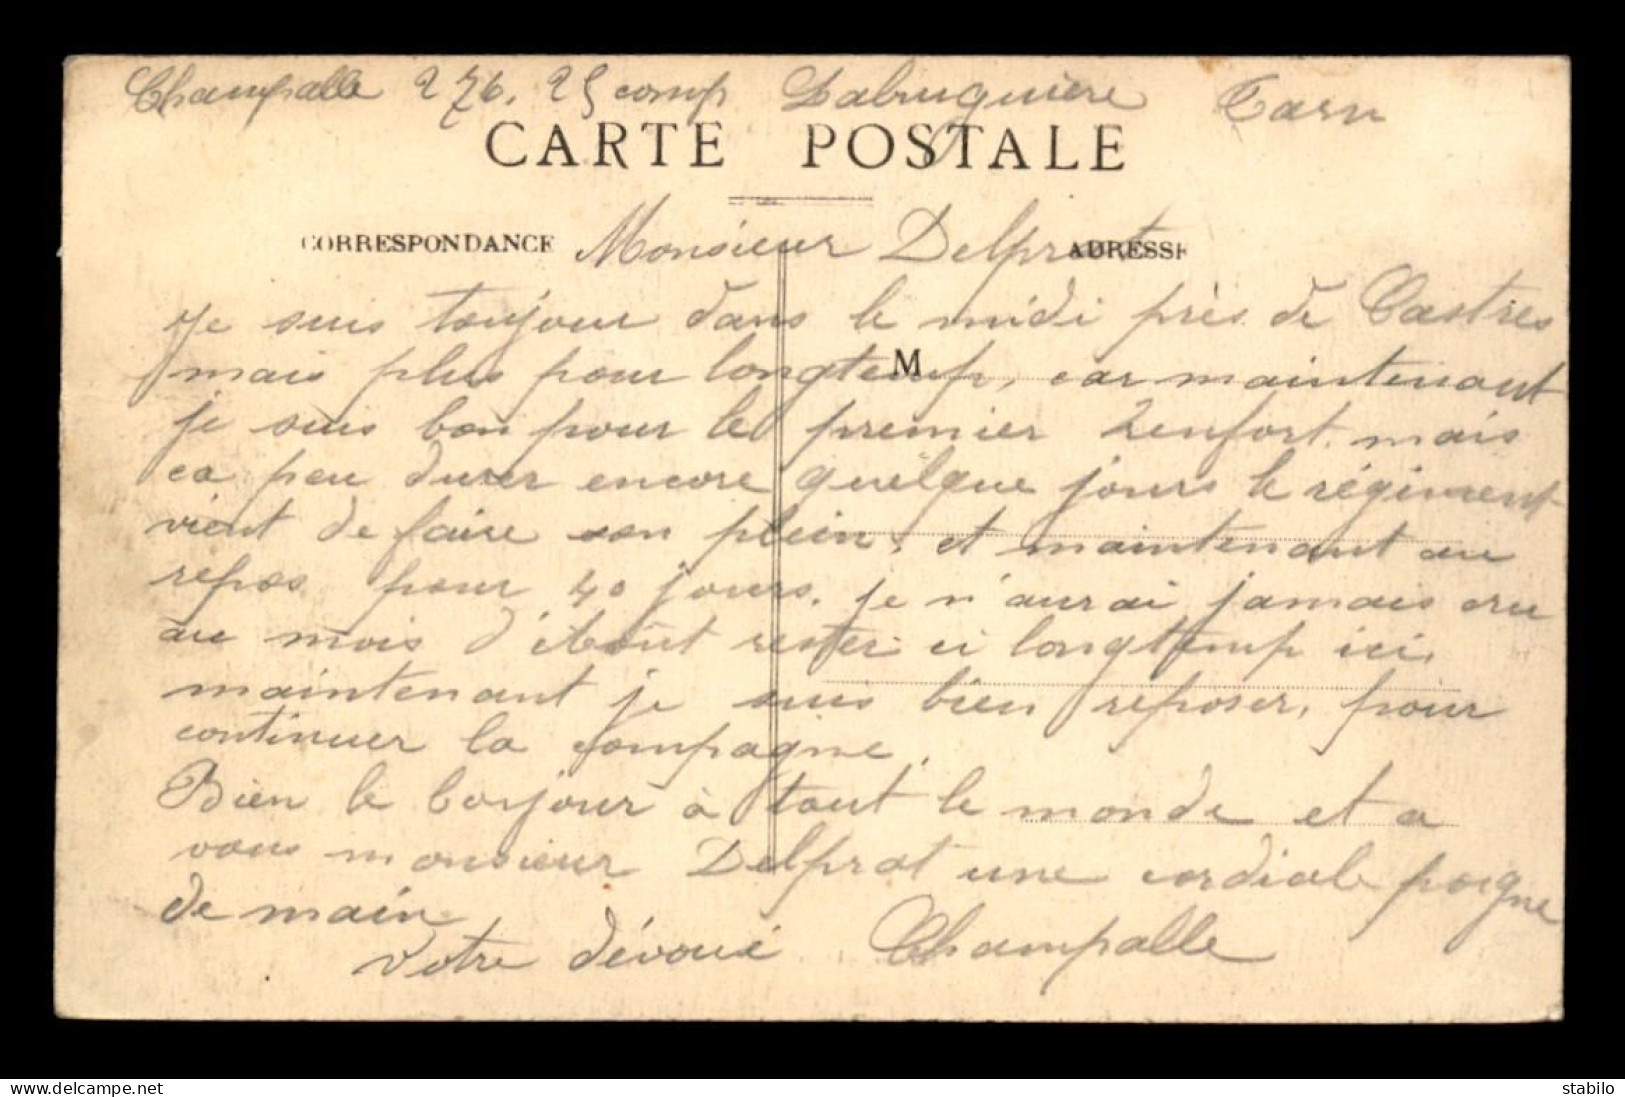 Champalle 276. 25 comp Labruguière Tarn
CARTE POSTALE
CORRESPONDANCE Monsieur Delprat ADRESSE
Je suis toujour dans le midi près de Castres
M
mais plus pour longtemp, car maintenant
je suis bon pour le premier renfort. mais
ca peu durer encore quelque jours le régiment
vient de faire son plein, et maintenant au
repos pour 40 jours. je n'aurai jamais cru
au mois d'Aout rester si longtemp ici,
maintenant je suis bien reposer, pour
continuer la compagne.
Bien le bonjour à tout le monde et a
vous monsieur Delprat une cordiale poigne
de main
Votre dévoué Champalle
www.delcampe.net
stabilo